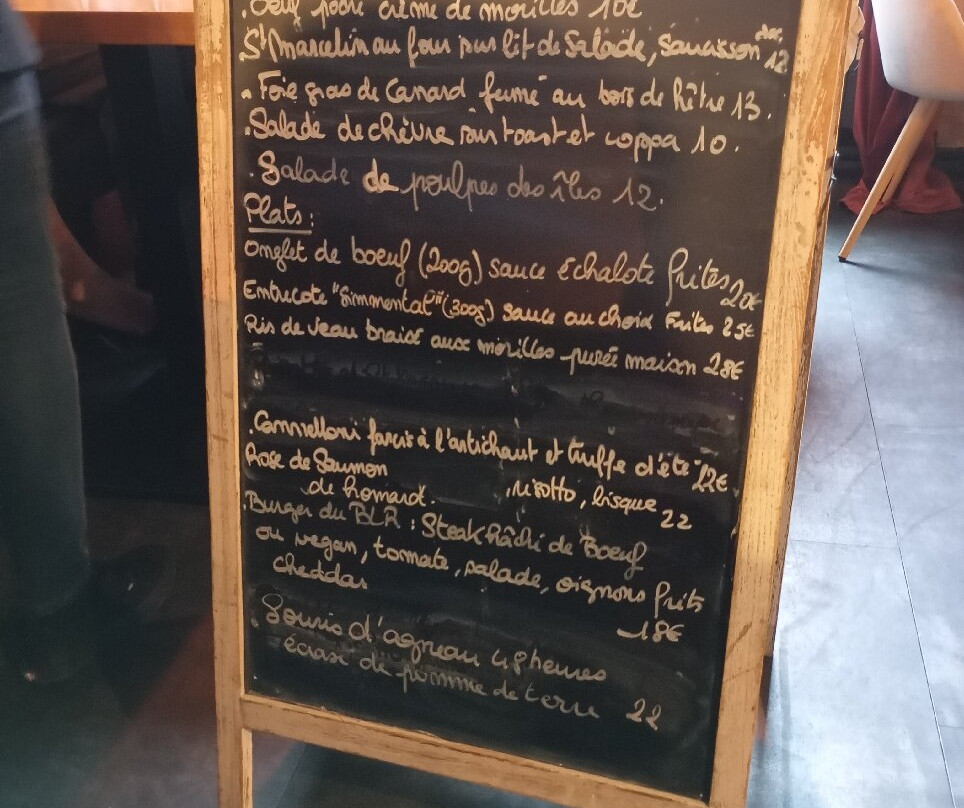 .Oeuf poché crème de morilles 10€
.St Marcelin au four sur lit de Salade, Saucisson sec, 12
. Foie gras de Canard fumé au bois de hêtre 13.
.Salade de chèvre sur toast et coppa 10.
.Salade de poulpes des îles 12.
Plats:
Onglet de boeuf (200g) sauce échalote frites 20€
Entrecote "Simmental" (300g) sauce au choix Frites 25€
Ris de veau braisé aux morilles purée maison 28€
.Cannelloni farcis à l'artichaut et truffe d'été 22€
Rose de Saumon
, risotto, bisque
de homard. 22
.Burger du BLR : Steak hâché de Boeuf
ou vegan, tomate, salade, oignons frits
cheddar
18€
. Souris d'agneau 4 heures
écrasé de pomme de terre 22